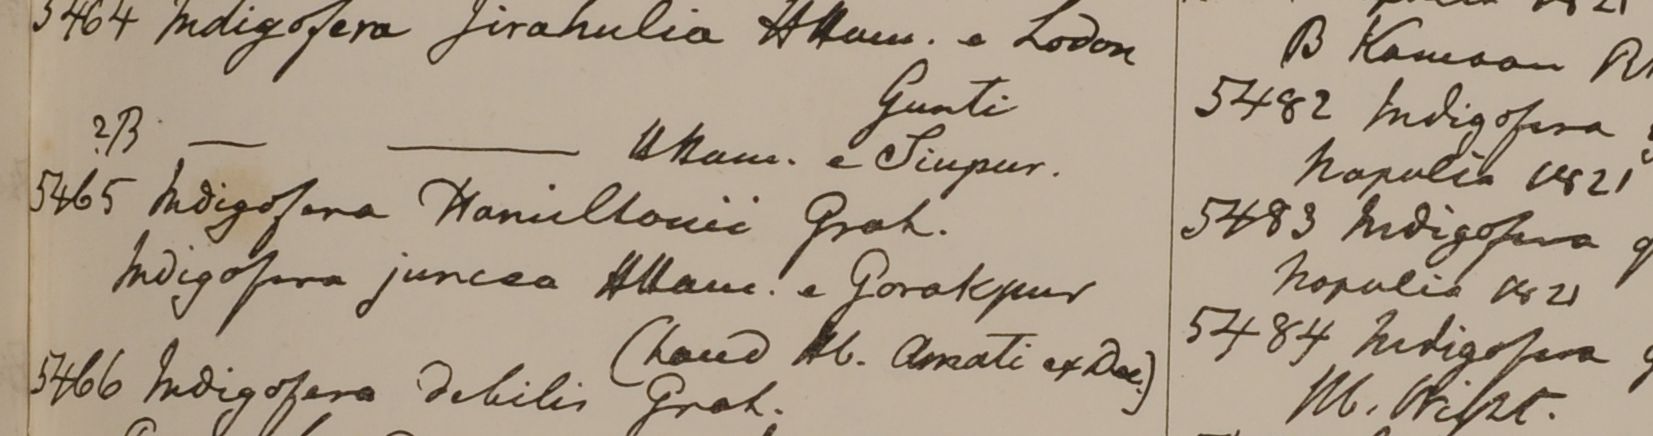 5464 Indigofera Jirahulia HHam. e Lodon
Gunti
?B — —— HHam. e Siupur.
5465 Indigofera Hamiltonii Grah.
Indigofera juncea HHam. e Gorakpur
(haud Hb. Amati ex Dec.)
5466 Indigofera debilis Grah.
1821
B Kamaon
5482 Indigofera
Napalia 1821
5483 Indigofera
Napalia 1821
5484 Indigofera
Hb. Wight.